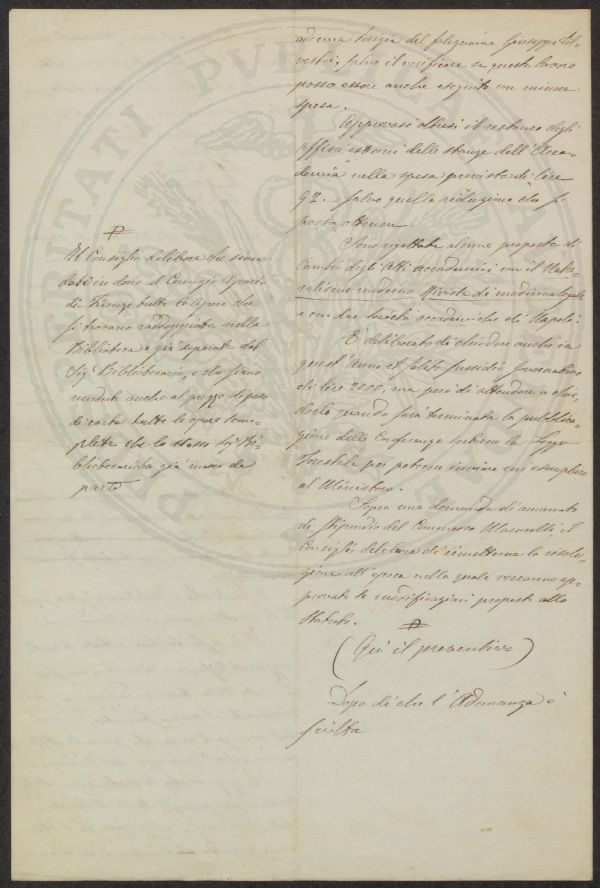 ad una targia del falegname Giuseppe Sil-
vestri, salvo il verificare se questo lavoro
possa essere anche eseguito con minore
spesa.
Approvasi altresì il restauro degli
affissi esterni delle stanze dell'Acca-
demia nella spesa prevista di lire
92. – salvo quella riduzione che si
possa ottenere.
Sono rigettate alcune proposte di
cambi degli Atti accademici con il Natu-
ralismo moderno Rivista di medicina legale
e con due società accademiche di Napoli.
È deliberato di chiedere anche in
quest'anno il solito sussidio Governativo
di lire 2000, ma però di attendere a chie-
derlo quando sarà terminata la pubblica-
zione delle Conferenze intorno la Legge
Forestale per poterne inviare un esemplare
al Ministero.
Sopra una domanda di aumento
di stipendio del Commesso il
Consiglio delibera di rimetterne la risolu-
zione all'epoca nella quale verranno ap-
provate le modificazioni proposte allo
Statuto.
(Qui il preventivo)
Dopo di che l'Adunanza è
sciolta
Il Consiglio delibera che sian
dati in dono al Comizio Agrario
di Firenze tutte le opere che
si trovano raddoppiate nella
Biblioteca e già separate dal
Sig. Bibliotecario, e che siano
vendute anche al prezzo di peso
di carta tutte le opere incom-
plete che lo stesso Sig. Bi-
bliotecario ha già messe da
parte